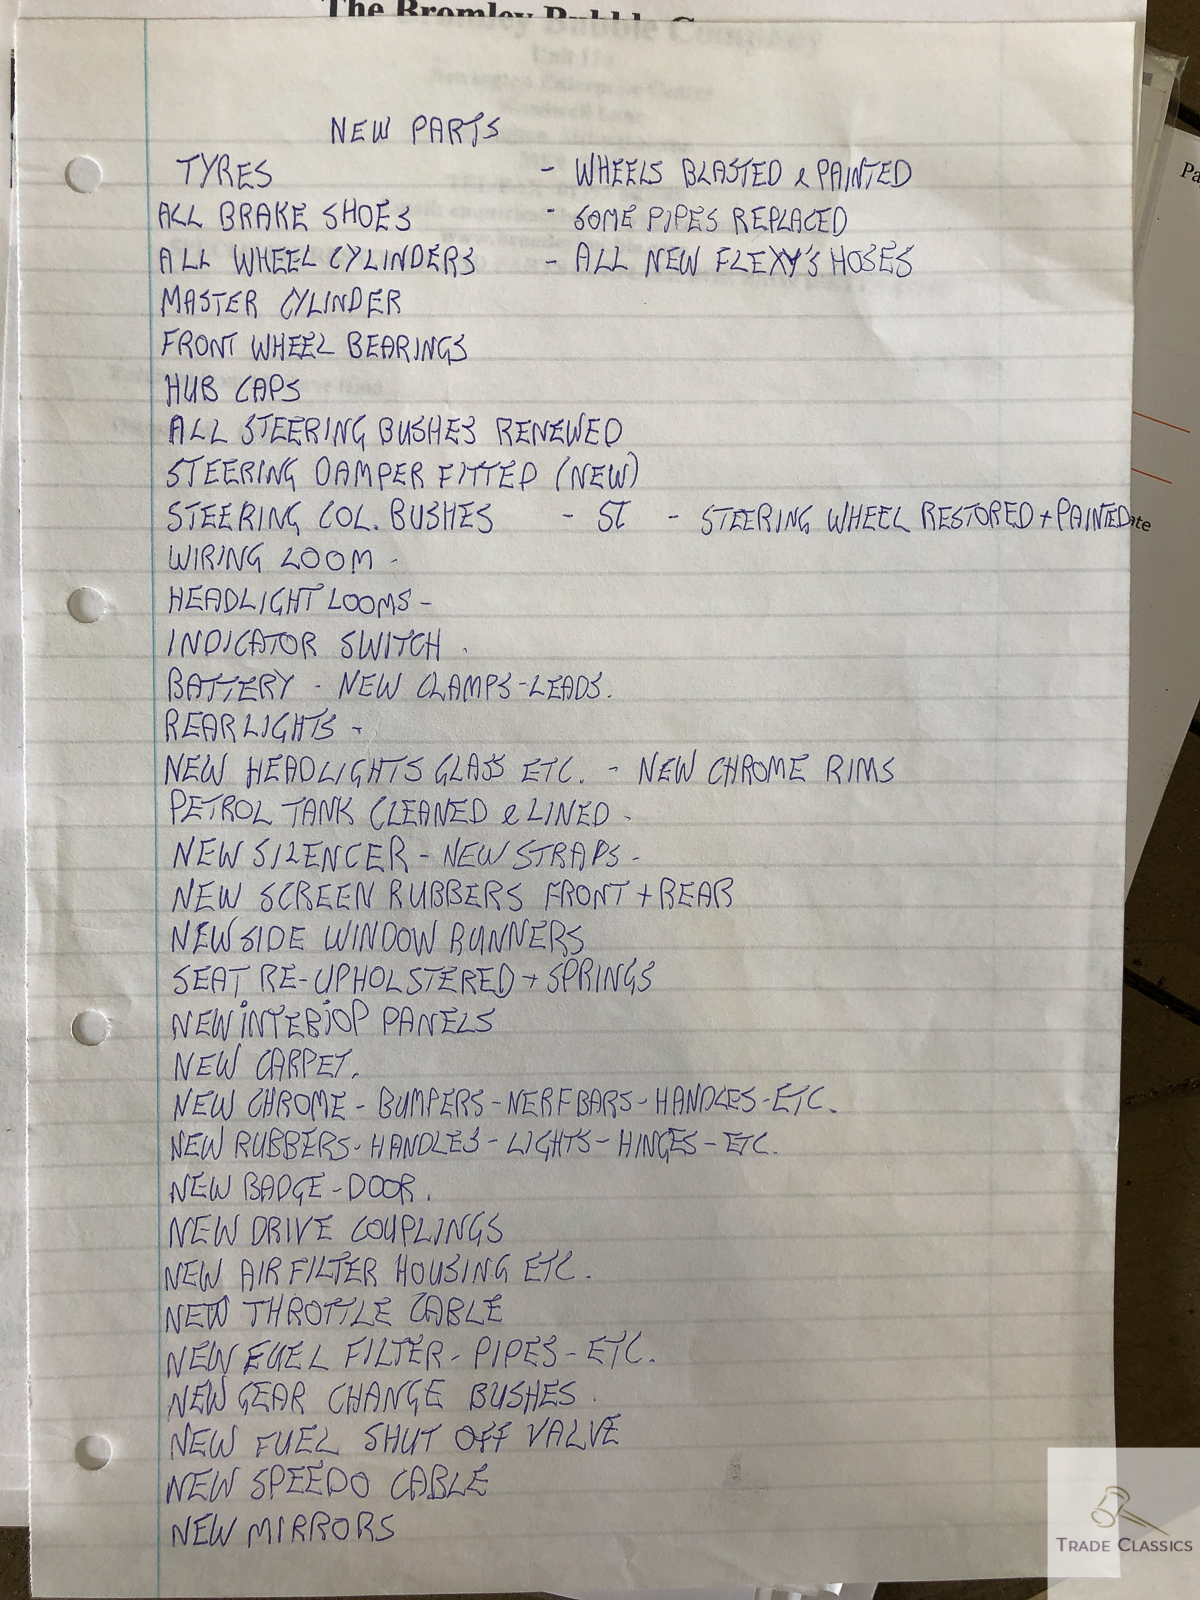 The Bromley Bubble
NEW PARTS
TYRES - WHEELS BLASTED & PAINTED
ALL BRAKE SHOES - SOME PIPES REPLACED
ALL WHEEL CYLINDERS - ALL NEW FLEXY'S HOSES
MASTER CYLINDER
FRONT WHEEL BEARINGS
HUB CAPS
ALL STEERING BUSHES RENEWED
STEERING DAMPER FITTED (NEW)
STEERING COL. BUSHES - ST - STEERING WHEEL RESTORED + PAINTED
WIRING LOOM -
HEADLIGHT LOOMS -
INDICATOR SWITCH .
BATTERY - NEW CLAMPS - LEADS.
REAR LIGHTS -
NEW HEADLIGHTS GLASS ETC. - NEW CHROME RIMS
PETROL TANK CLEANED & LINED -
NEW SILENCER - NEW STRAPS -
NEW SCREEN RUBBERS FRONT + REAR
NEW SIDE WINDOW RUNNERS
SEAT RE-UPHOLSTERED + SPRINGS
NEW INTERIOR PANELS
NEW CARPET.
NEW CHROME - BUMPERS - NERF BARS - HANDLES - ETC.
NEW RUBBERS - HANDLES - LIGHTS - HINGES - ETC.
NEW BADGE - DOOR.
NEW DRIVE COUPLINGS
NEW AIR FILTER HOUSING ETC.
NEW THROTTLE CABLE
NEW FUEL FILTER - PIPES - ETC.
NEW GEAR CHANGE BUSHES .
NEW FUEL SHUT OFF VALVE
NEW SPEEDO CABLE
NEW MIRRORS
TRADE CLASSICS